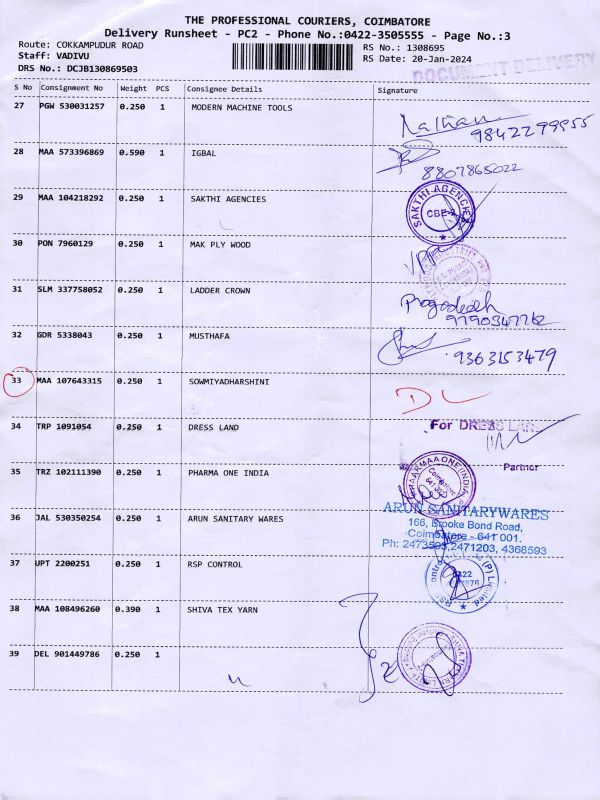 THE PROFESSIONAL COURIERS, COIMBATORE
Delivery Runsheet - PC2 - Phone No.:0422-3505555 - Page No.:3
Route: COKKAMPUDUR ROAD RS No.: 1308695
Staff: VADIVU RS Date: 20-Jan-2024
DRS No.: DCJB130869503 DOCUMENT DELIVERY
S No Consignment No Weight PCS Consignee Details Signature
27 PGW 530031257 0.250 1 MODERN MACHINE TOOLS
9842299955
28 MAA 573396869 0.590 1 IGBAL
8807865022
29 MAA 104218292 0.250 1 SAKTHI AGENCIES
SAKTHI AGENCIES
CBE-2
30 PON 7960129 0.250 1 MAK PLY WOOD
31 SLM 337758052 0.250 1 LADDER CROWN
32 GDR 5338043 0.250 1 MUSTHAFA
9363153479
33 MAA 107643315 0.250 1 SOWMIYADHARSHINI
DL
34 TRP 1091054 0.250 1 DRESS LAND
For DRESS LAND
Partner
35 TRZ 102111390 0.250 1 PHARMA ONE INDIA
Coimbatore
36 JAL 530350254 0.250 1 ARUN SANITARY WARES
ARUN SANITARYWARES
166, Brooke Bond Road,
Coimbatore - 641 001.
Ph: 2473503,2471203, 4368593
37 UPT 2200251 0.250 1 RSP CONTROL
(P) Limited
38 MAA 108496260 0.390 1 SHIVA TEX YARN
39 DEL 901449786 0.250 1